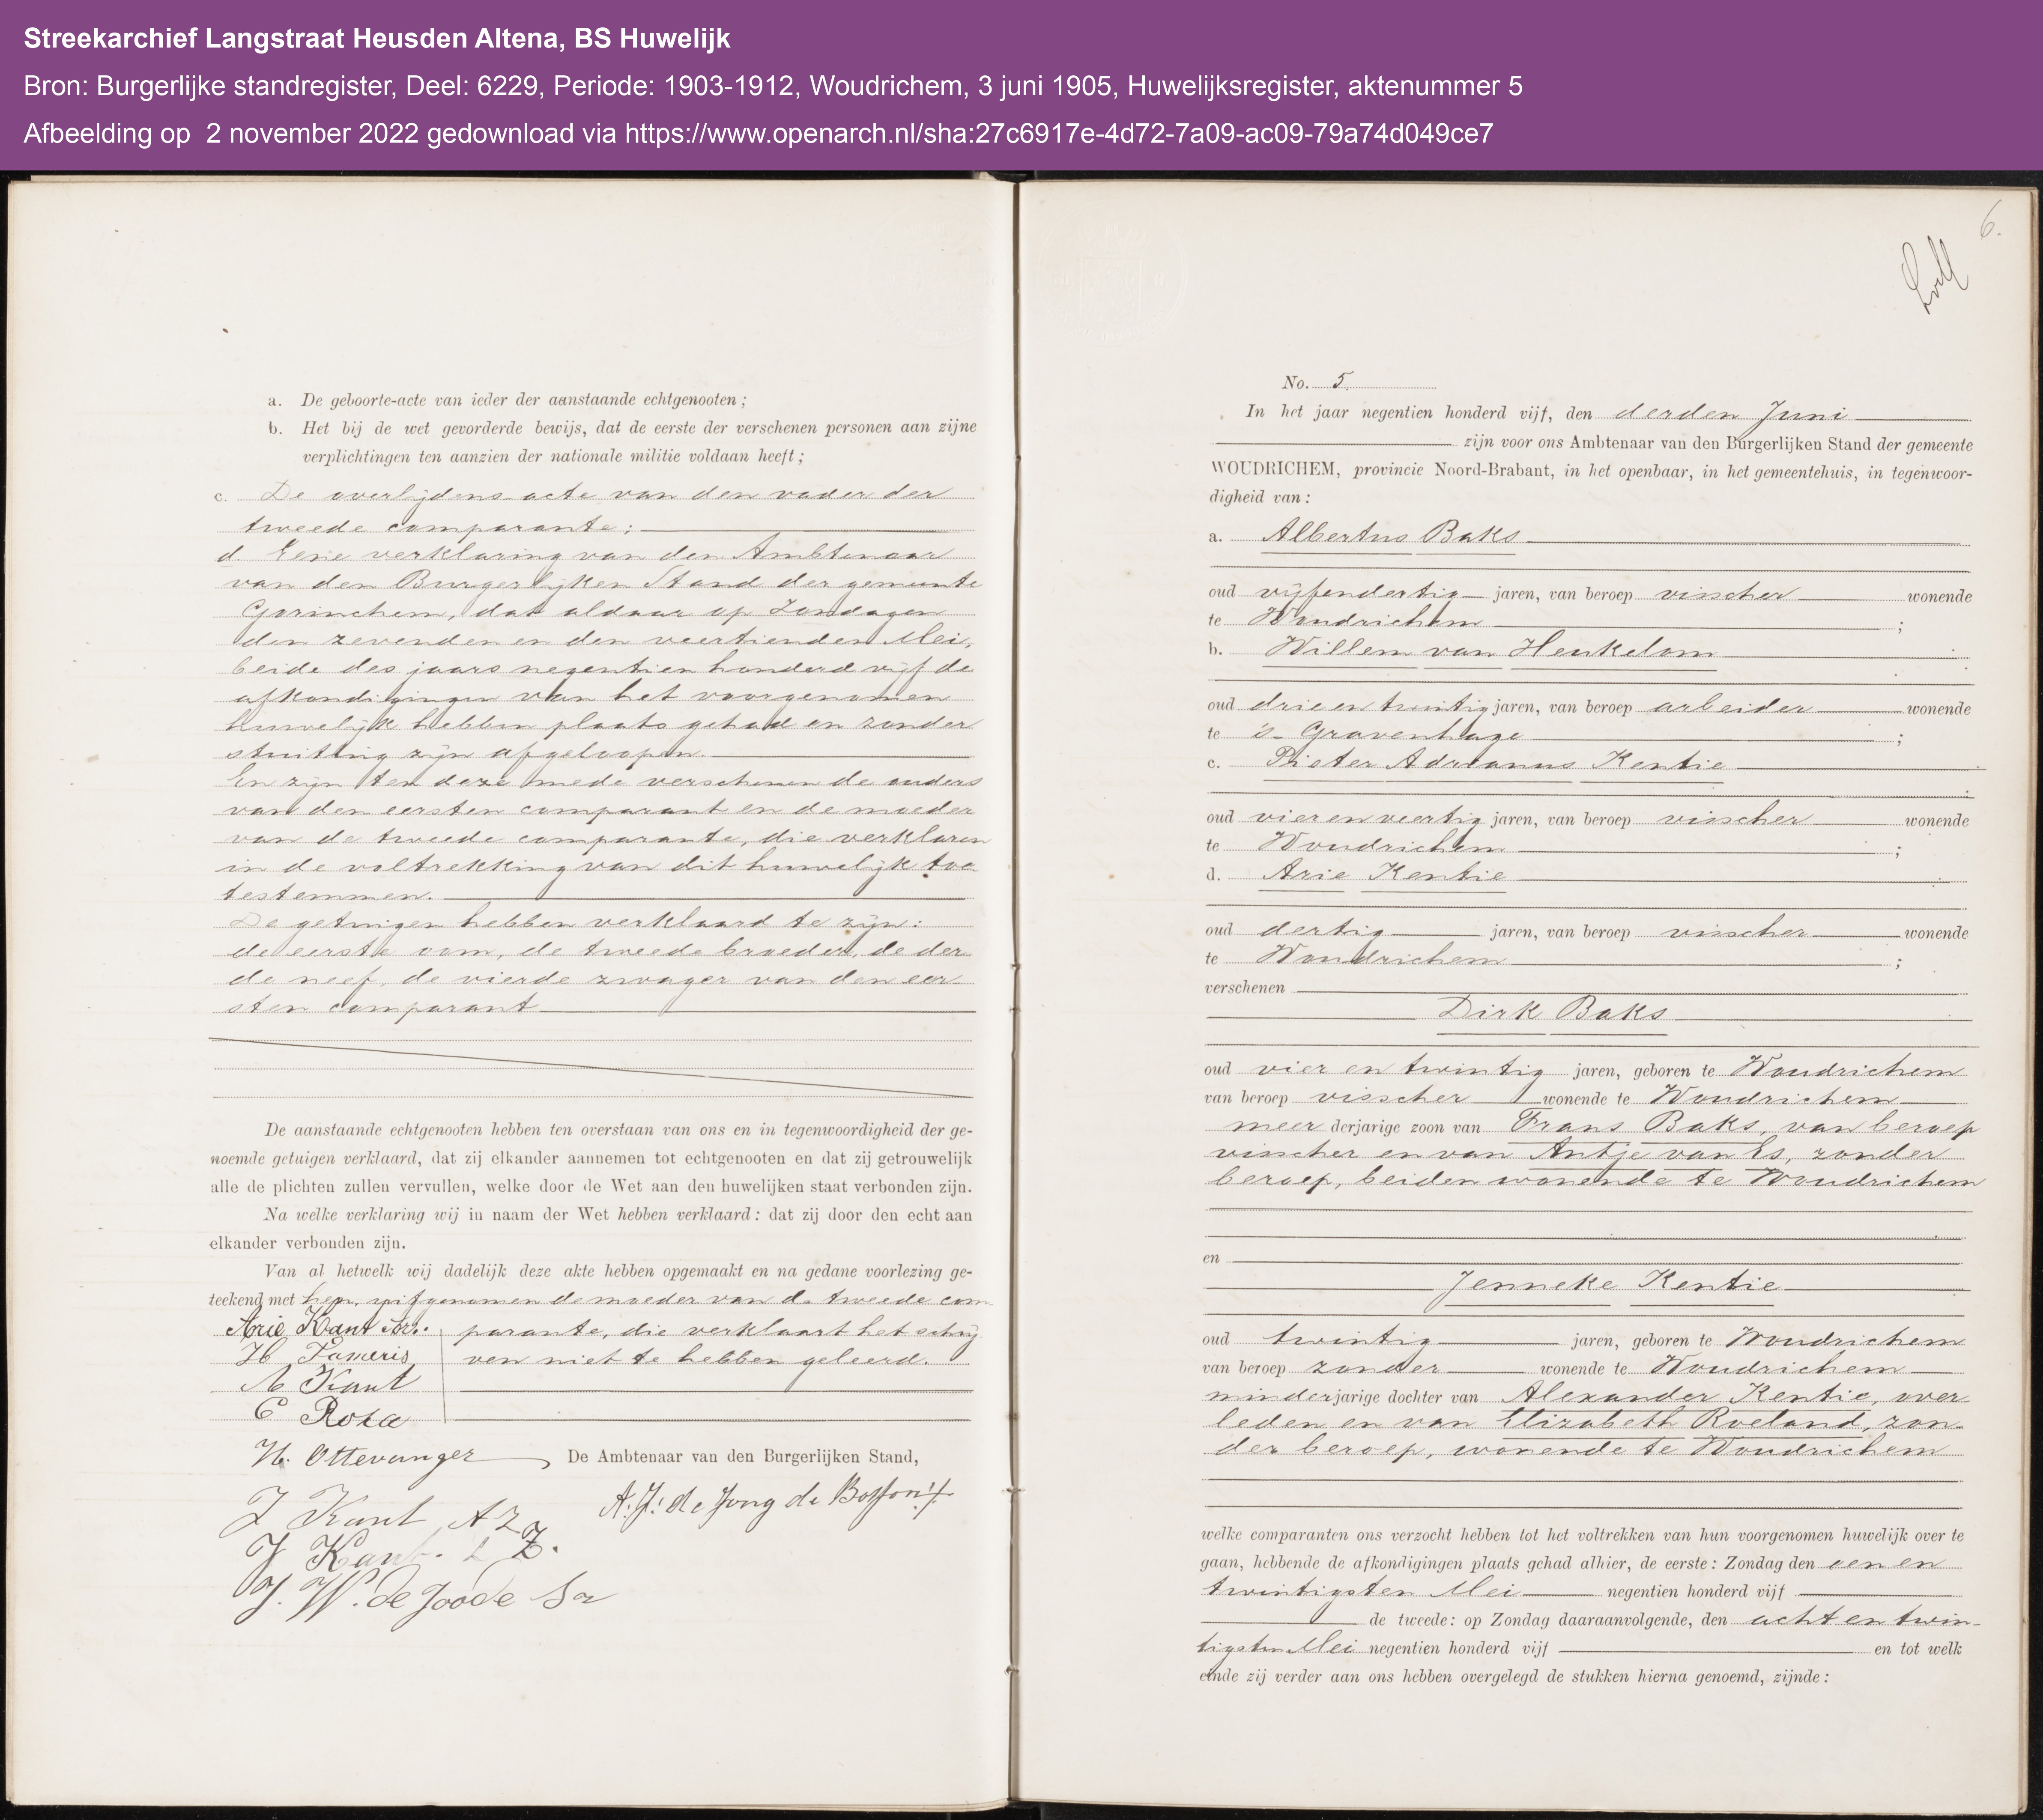 Streekarchief Langstraat Heusden Altena, BS Huwelijk
Bron: Burgerlijke standregister, Deel: 6229, Periode: 1903-1912, Woudrichem, 3 juni 1905, Huwelijksregister, aktenummer 5
Afbeelding op 2 november 2022 gedownload via https://www.openarch.nl/sha:27c6917e-4d72-7a09-ac09-79a74d049ce7
a. De geboorte-acte van ieder der aanstaande echtgenooten;
b. Het bij de wet gevorderde bewijs, dat de eerste der verschenen personen aan zijne
verplichtingen ten aanzien der nationale militie voldaan heeft;
c. De overlijdens acte van den vader der
tweede comparante;
d. Eene verklaring van den Ambtenaar
van den Burgerlijken Stand der gemeente
Gorinchem, dat aldaar op Zondagen
den zevenden en den veertienden Mei,
beide des jaars negentien honderd vijf de
afkondigingen van het voorgenomen
huwelijk hebben plaats gehad en zonder
stuiting zijn afgeloopen.
En zijn ten deze mede verschenen de ouders
van den eersten comparant en de moeder
van de tweede comparante, die verklaren
in de voltrekking van dit huwelijk toe
testemmen.
De getuigen hebben verklaard te zijn:
de eerste oom, de tweede broeder, de der
de neef, de vierde zwager van den eer
sten comparant
De aanstaande echtgenooten hebben ten overstaan van ons en in tegenwoordigheid der ge-
noemde getuigen verklaard, dat zij elkander aannemen tot echtgenooten en dat zij getrouwelijk
alle de plichten zullen vervullen, welke door de Wet aan den huwelijken staat verbonden zijn.
Na welke verklaring wij in naam der Wet hebben verklaard: dat zij door den echt aan
elkander verbonden zijn.
Van al hetwelk wij dadelijk deze akte hebben opgemaakt en na gedane voorlezing ge-
teekend met hen, uitgenomen de moeder van de tweede com
parante, die verklaart het schrij
ven niet te hebben geleerd.
Arie Kant Az.
H Tameris
A Kant
C Roza
H. Ottevanger
De Ambtenaar van den Burgerlijken Stand,
J Kant AZ
A. J. de Jong de
J Kant. Z.
J. W. de Joode
6.
No. 5.
In het jaar negentien honderd vijf, den derden Juni
zijn voor ons Ambtenaar van den Burgerlijken Stand der gemeente
WOUDRICHEM, provincie Noord-Brabant, in het openbaar, in het gemeentehuis, in tegenwoor-
digheid van:
a. Albertus Baks
oud vijfendertig jaren, van beroep visscher wonende
te Woudrichem ;
b. Willem van Heukelom
oud drie en twintig jaren, van beroep arbeider wonende
te 's-Gravenhage ;
c. Pieter Adrianus Kentie
oud vier en veertig jaren, van beroep visscher wonende
te Woudrichem ;
d. Arie Kentie
oud dertig jaren, van beroep visscher wonende
te Woudrichem ;
verschenen
Dirk Baks
oud vier en twintig jaren, geboren te Woudrichem
van beroep visscher wonende te Woudrichem
meer derjarige zoon van Frans Baks, van beroep
visscher en van Antje van Es, zonder
beroep, beiden wonende te Woudrichem
en
Jenneke Kentie
oud twintig jaren, geboren te Woudrichem
van beroep zonder wonende te Woudrichem
minderjarige dochter van Alexander Kentie, over
leden en van Elizabeth Roeland, zon-
der beroep, wonende te Woudrichem
welke comparanten ons verzocht hebben tot het voltrekken van hun voorgenomen huwelijk over te
gaan, hebbende de afkondigingen plaats gehad alhier, de eerste: Zondag den een en
twintigsten Mei negentien honderd vijf
de tweede: op Zondag daaraanvolgende, den acht en twin-
tigsten Mei negentien honderd vijf en tot welk
einde zij verder aan ons hebben overgelegd de stukken hierna genoemd, zijnde: